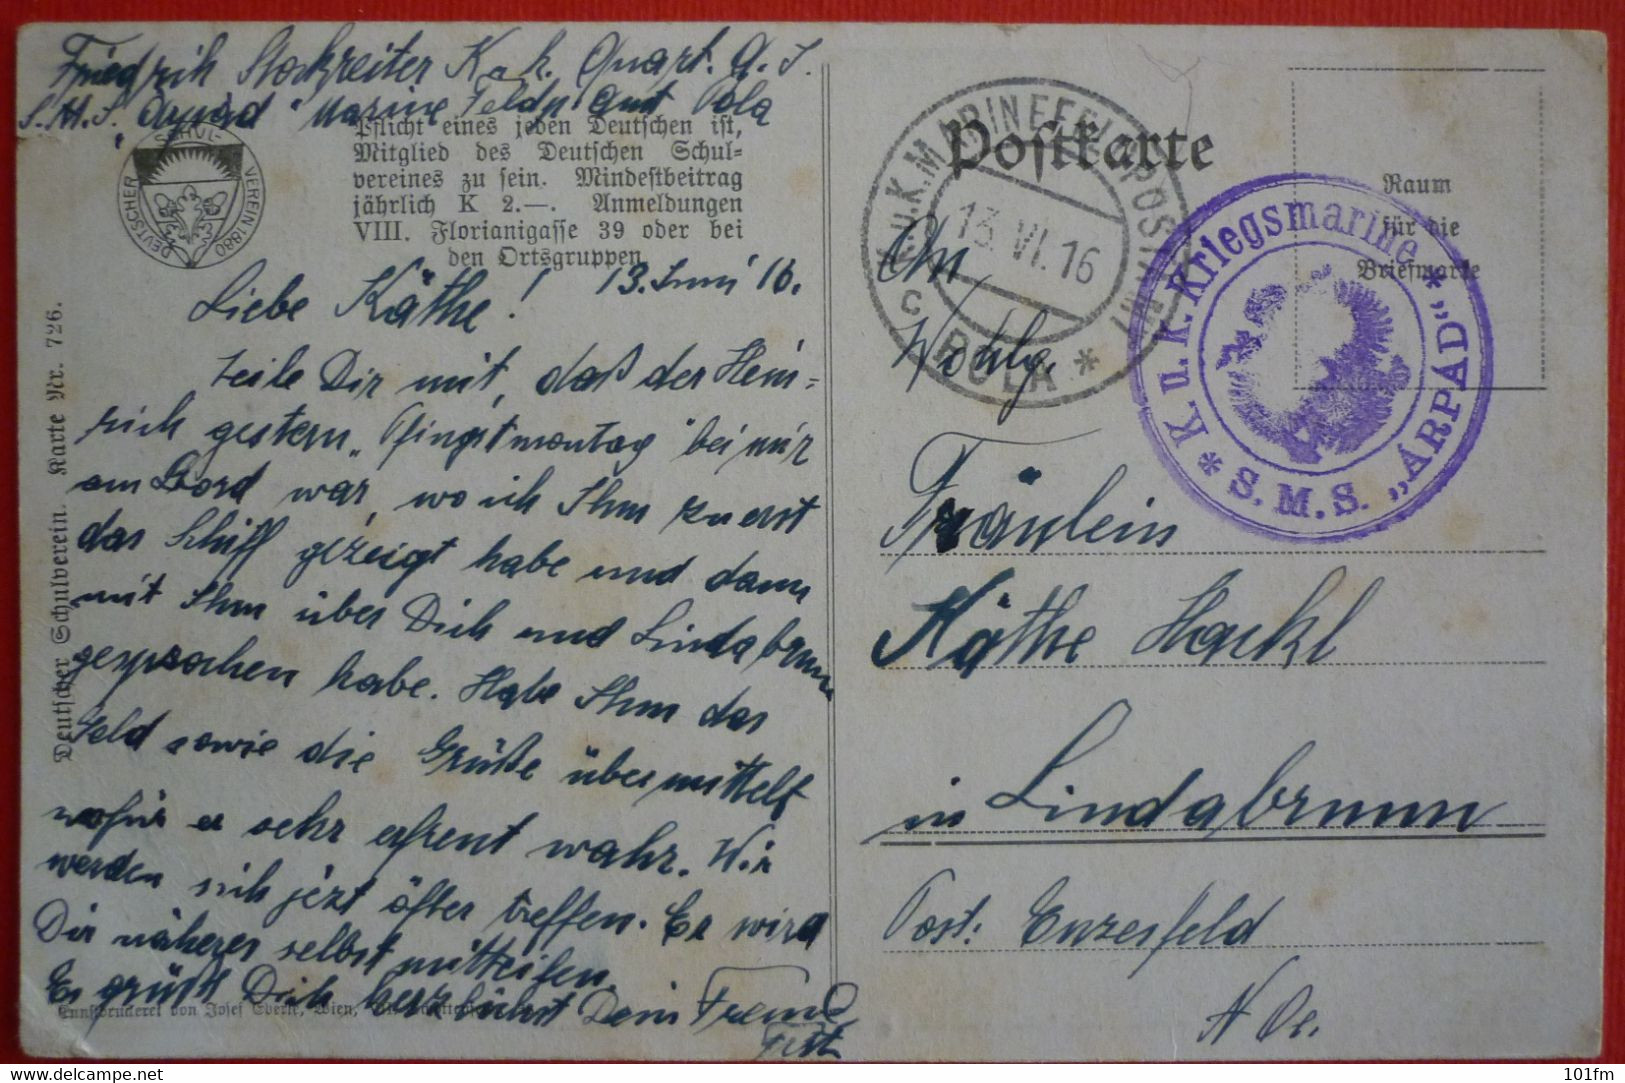 Friedrik Stockreiter K. k. Quart. G. I.
S.M.S. "Arpád" Marine Feldp. Amt Pola
DEUTSCHER SCHUL-VEREIN 1880
Pflicht eines jeden Deutschen ist,
Mitglied des Deutschen Schul-
vereines zu sein. Mindestbeitrag
jährlich K 2.—. Anmeldungen
VIII. Florianigasse 39 oder bei
den Ortsgruppen
13. Juni 16.
Liebe Käthe!
teile Dir mit, daß der Hein-
rich gestern „Pfingstmontag" bei mir
am Bord war, wo ich Ihm zuerst
das Schiff gezeigt habe und dann
mit Ihm über Dich und Lindabrunn
gesprochen habe. Habe Ihm das
Geld sowie die Grüße übermittelt
wofür er sehr erfreut wahr. Wir
werden sich jezt öfter treffen. Er wird
Dir näheres selbst mitteilen.
Es grüßt Dich herzlichst Dein Freund
Fritz
Deutscher Schulverein. Karte Nr. 726.
Kunstdruckerei von Josef Eberle, Wien, VII.
Postkarte
K.u.K. MARINEFELDPOSTAMT
13. VI. 16
c POLA *
Raum
für die
Briefmarke
* K. u. K. Kriegsmarine *
S. M. S. „ÁRPÁD"
An
Wohlg.
Fräulein
Käthe Hackl
in Lindabrunn
Post: Enzesfeld
N Oe.
101fm